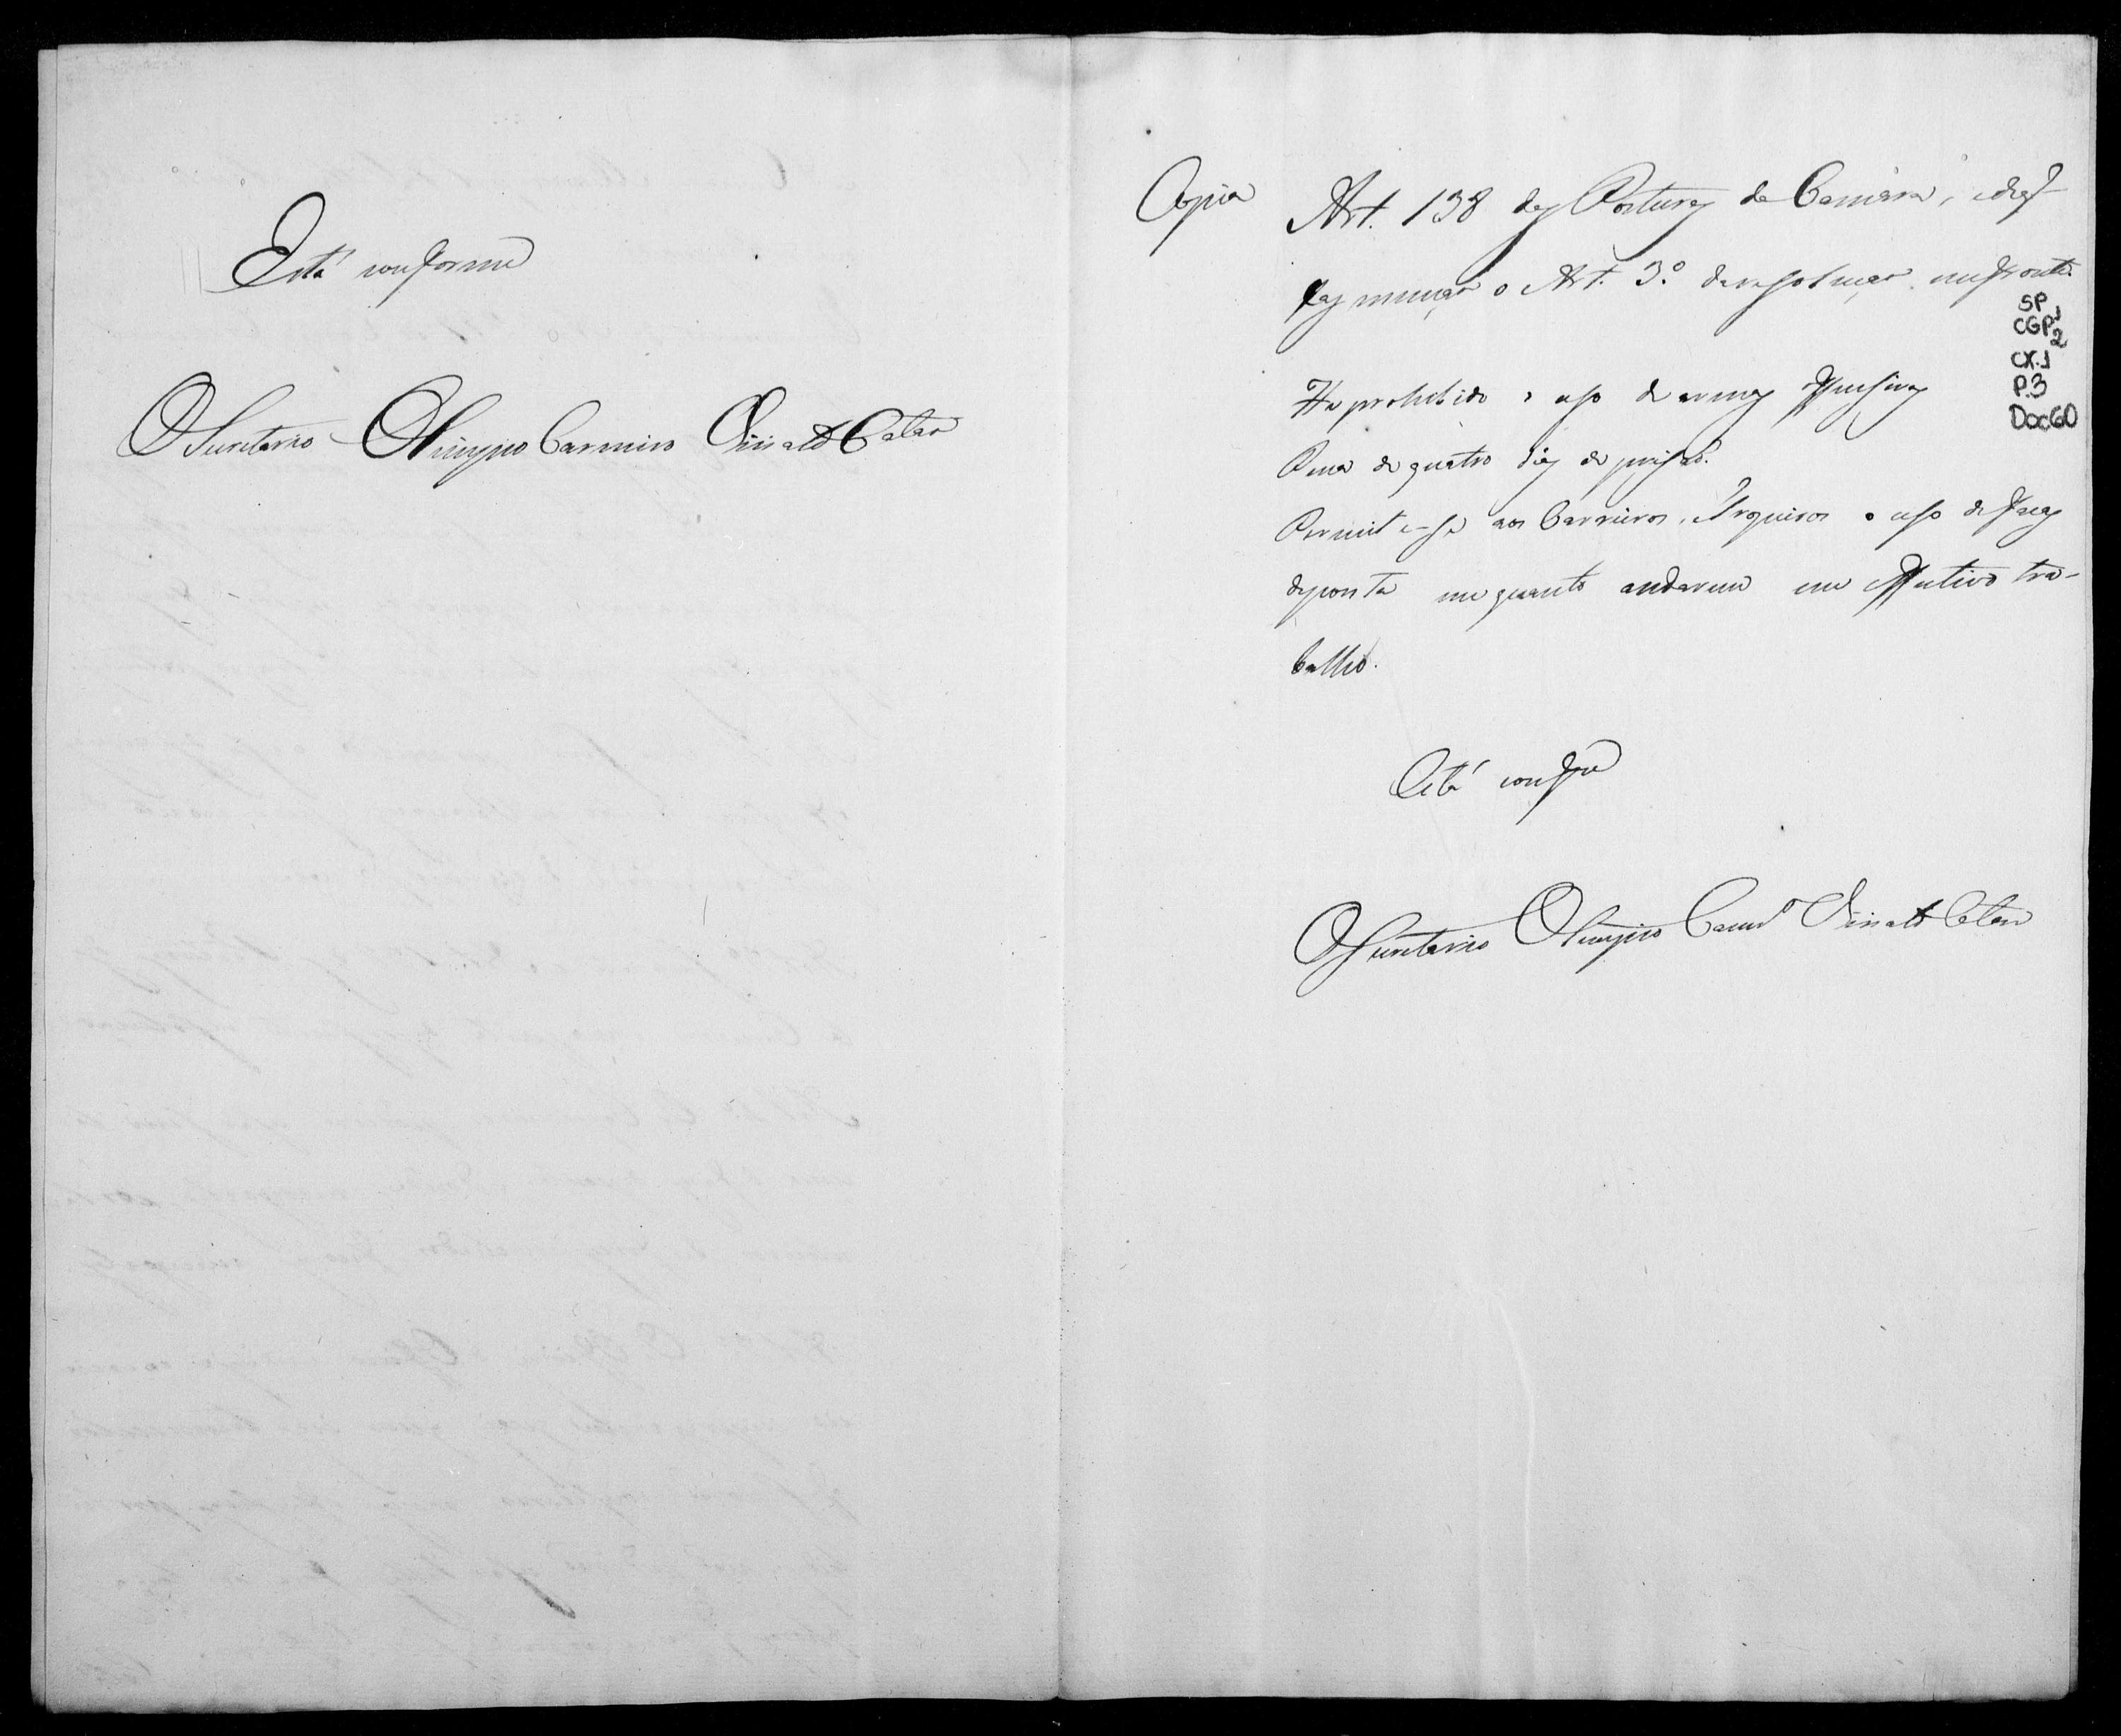 Está conforme
O Secretario Olimpio Carneiro Viriato Catão
Copia
Art. 138 das Posturas da Camara, de q
faz menção o Art. 3º da resolução
He prohibido o uso de armas offensivas
Pena de quatro dias de prisão.
Permite-se aos Carreiros, Tropeiros o uso de faca
de ponta em quanto andarem em effectivo tra-
balho.
Está confe
O Secretario Olimpio Carnro Viriato Catão
SP
CGP1
2
CX.1
P.3
Doc60